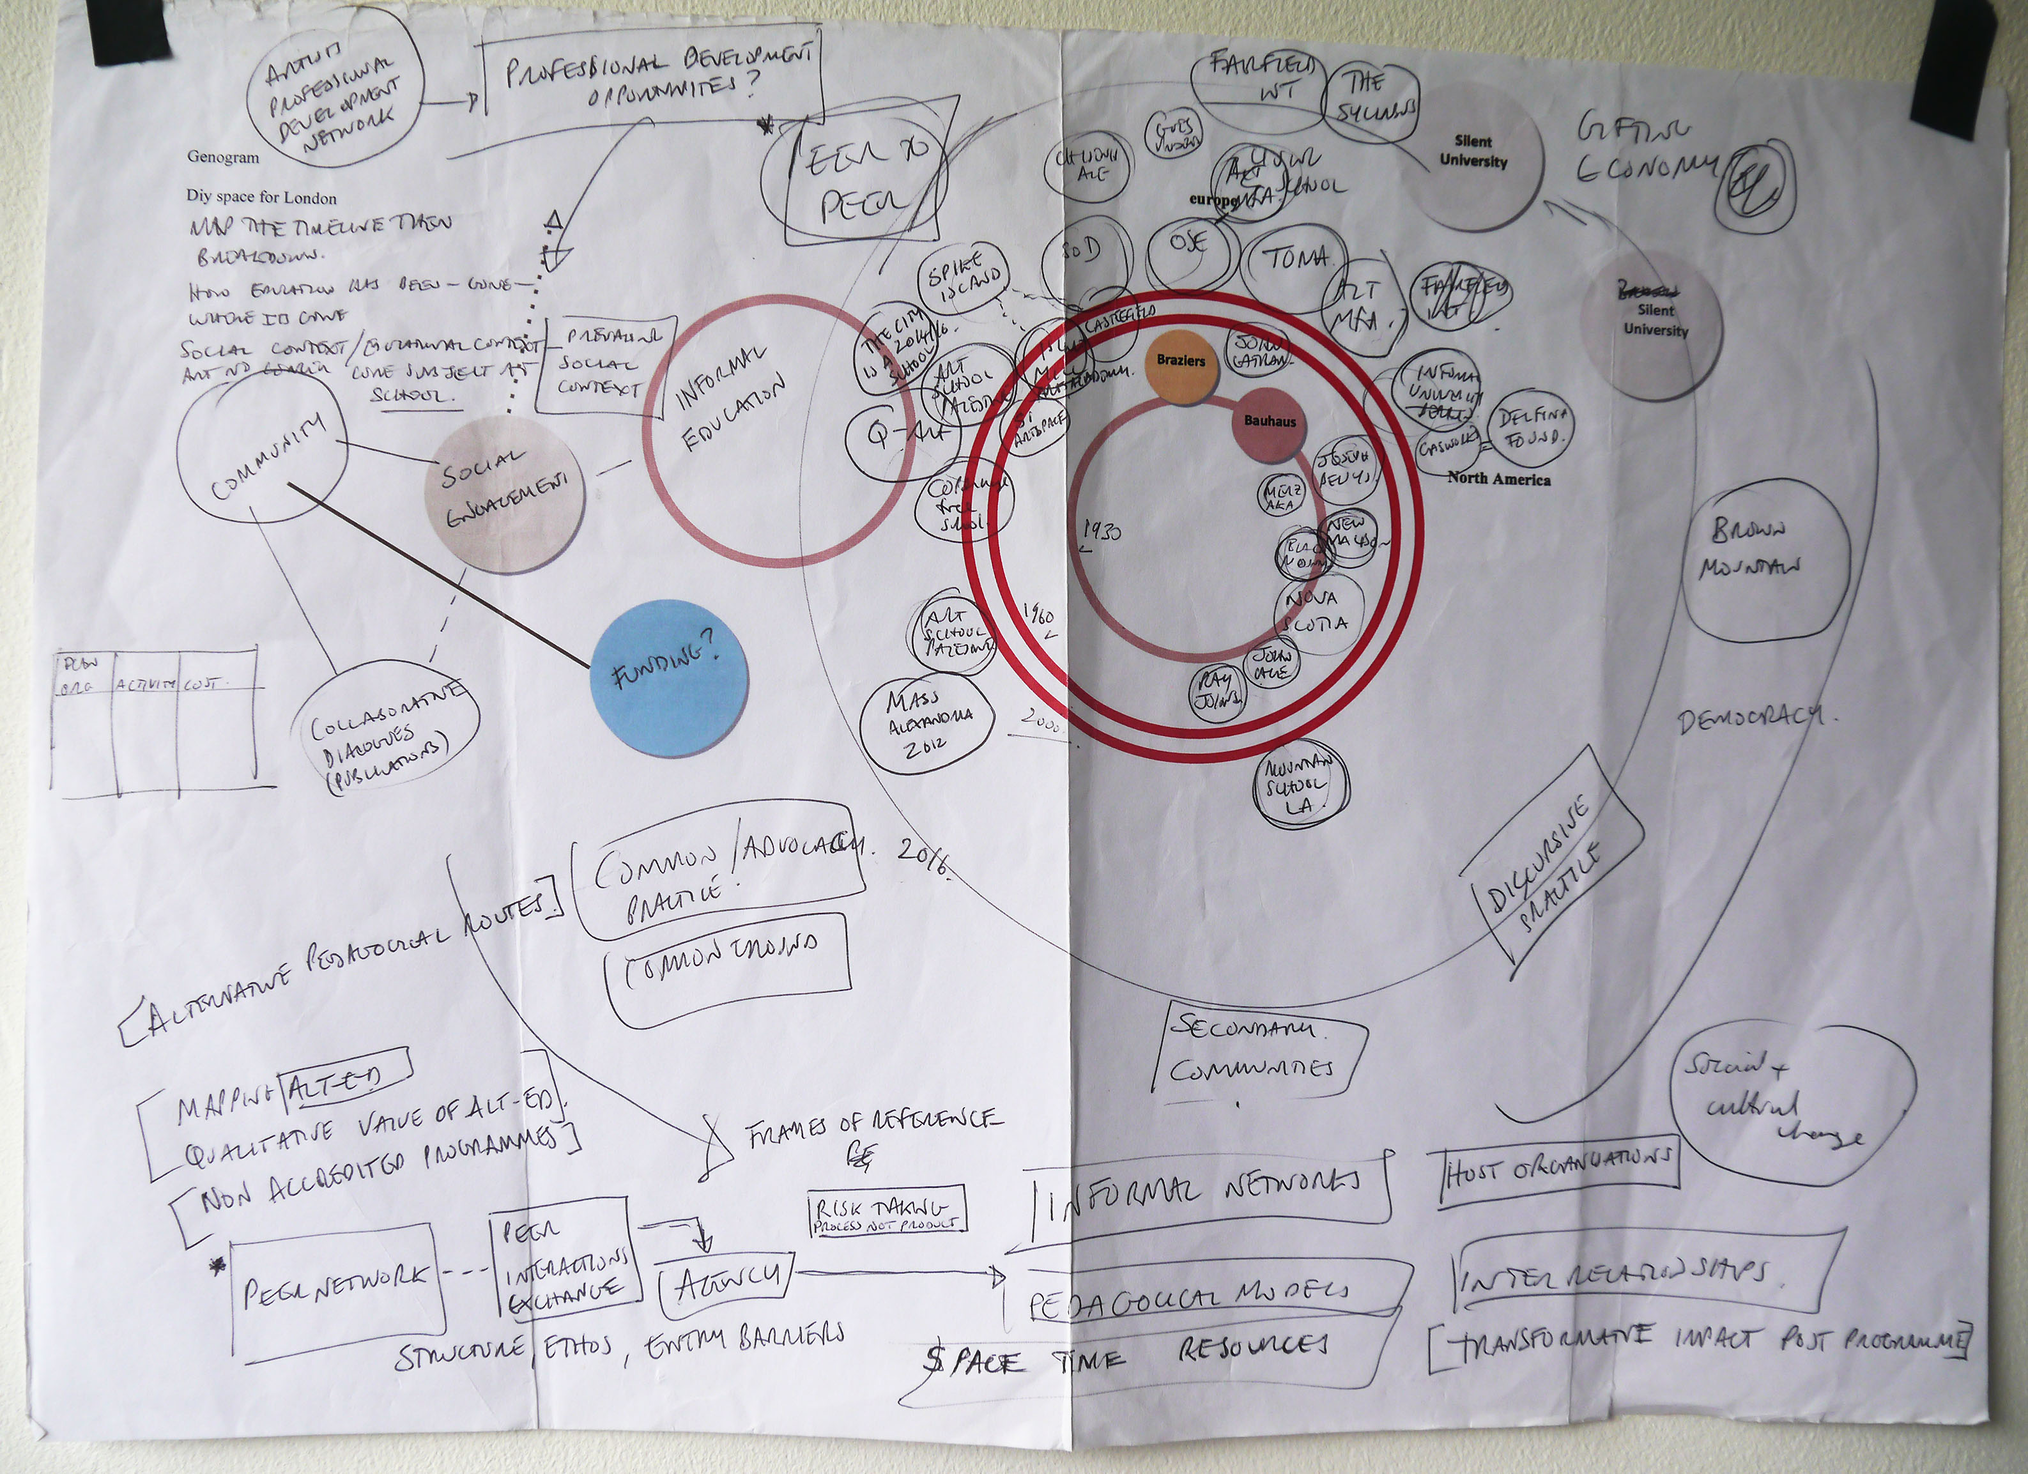 ARTIST
PROFESSIONAL
DEVELOPMENT
NETWORK
PROFESSIONAL DEVELOPMENT
OPPORTUNITIES?
Genogram
Diy space for London
MAP THE TIMELINE THEN
BREAKDOWN.
HOW EDUCATION HAS BEEN - GONE -
WHERE IS GONE
SOCIAL CONTEXT / EDUCATIONAL CONTEXT
ART NO LONGER CORE SUBJECT AT
SCHOOL.
PREVAILING
SOCIAL
CONTEXT
PEER TO
PEER
COMMUNITY
SOCIAL
ENGAGEMENT
INFORMAL
EDUCATION
FUNDING?
COLLABORATIVE
DIALOGUES
(PUBLICATIONS)
ORG
ACTIVITY
COST.
FAIRFIELD
INT
THE
SYLLABUS
Silent
University
GIFTING
ECONOMY
europe
SOD
OSE
TOMA
ALT
MFA.
FAIRFIELD
INT
Silent
University
SPIKE
ISLAND
THE CITY
IS A
SCHOOL
2014/16.
ART
SCHOOL
PALESTINE
Q-ART
S1
ARTSPACE
COPENHAGEN
free
school.
CASTLEFIELD
Braziers
JOHN
LATHAM.
Bauhaus
INFORMAL
UNIVERSITY
GASWORKS
DELFINA
FOUND.
North America
JOSEPH
BEUYS.
MERZ
AKA
NEW
MALDON
NOVA
SCOTIA
JOHN
CAGE
RAY
JOHNS.
1930
1960
2000.
ART
SCHOOL
PALESTINE
MASS
ALEXANDRIA
2012
MOUNTAIN
SCHOOL
LA.
BROWN
MOUNTAIN
DEMOCRACY.
DISCURSIVE
PRACTICE
2016.
COMMON / ADVOCACY.
PRACTICE.
COMMON GROUND
[ALTERNATIVE PEDAGOGICAL ROUTES]
SECONDARY
COMMUNITIES
Social +
cultural
change
[MAPPING ALT-ED
QUALITATIVE VALUE OF ALT-ED].
[NON ACCREDITED PROGRAMMES]
FRAMES OF REFERENCE
RISK TAKING
PROCESS NOT PRODUCT
INFORMAL NETWORKS
HOST ORGANISATIONS
* PEER NETWORK
PEER
INTERACTIONS
EXCHANGE
AGENCY
PEDAGOGICAL MODELS
INTER RELATIONSHIPS.
STRUCTURE, ETHOS, ENTRY BARRIERS
SPACE TIME RESOURCES
[TRANSFORMATIVE IMPACT POST PROGRAMME]